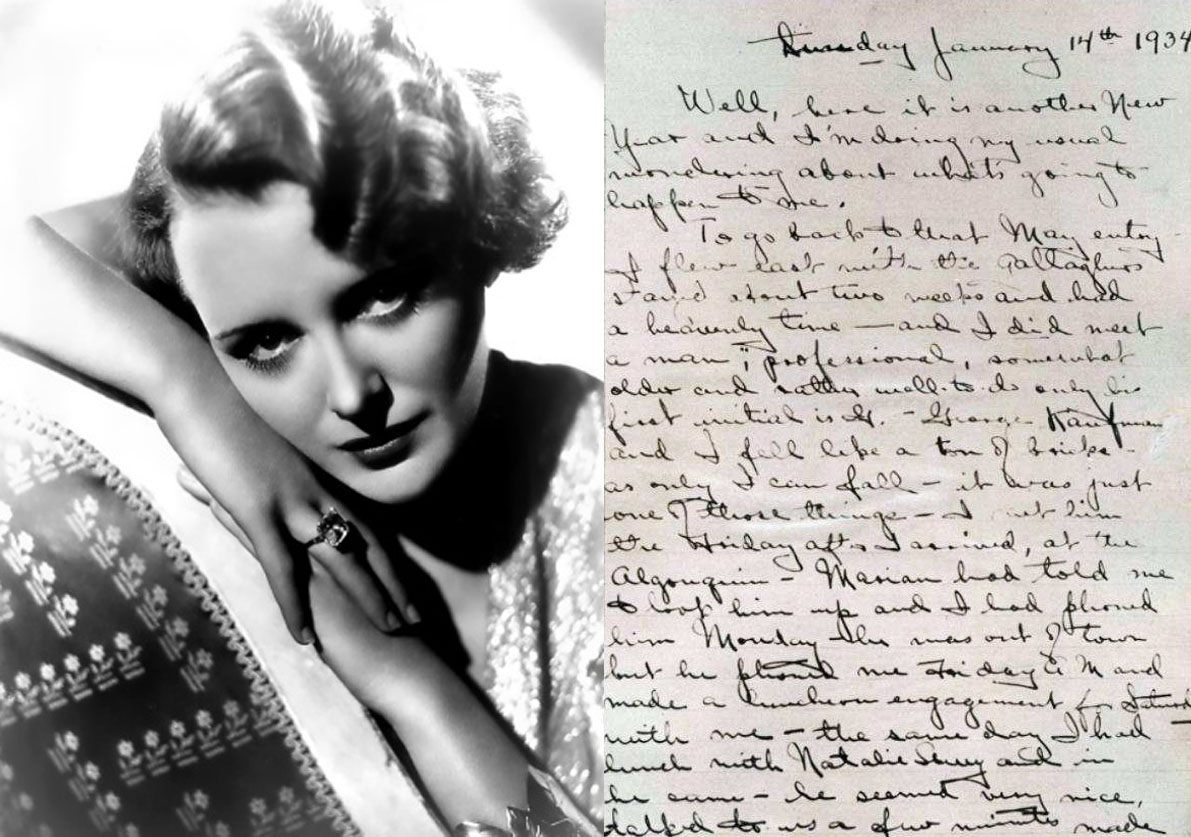 Tuesday January 14th 1934
Well, here it is another New
Year and I'm doing my usual
wondering about what's going to
happen to me.
To go back to that May entry -
I flew east with the Gallaghers
stayed about two weeks and had
a heavenly time — and I did meet
a man "professional, somewhat
older and rather well-to-do only his
first initial is G. - George Kaufman
and I fell like a ton of bricks -
as only I can fall - it was just
one of those things - I met him
the Friday after I arrived, at the
Algonquin - Marian had told me
to look him up and I had phoned
him Monday - he was out of town
but he phoned me Friday A M and
made a luncheon engagement for Saturd
with me - the same day I had
lunch with Natalie and in
he came - he seemed very nice,
talked to us a few minutes made